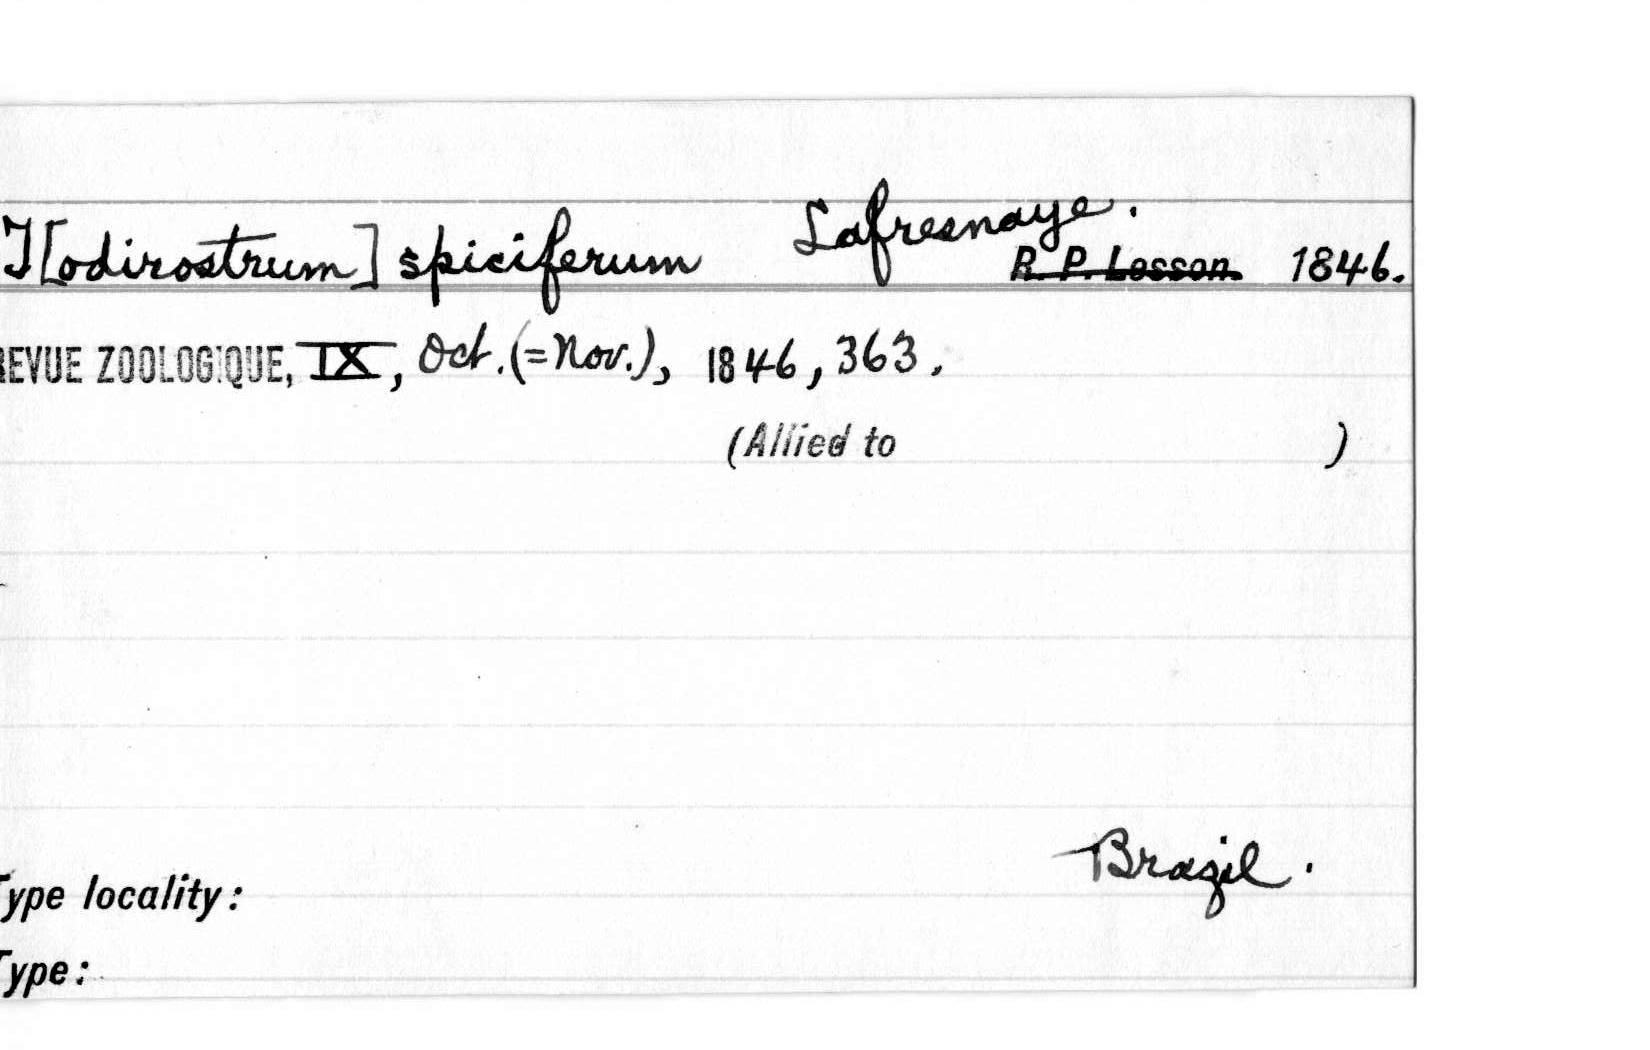 T[odirostrum] spiciferum Lafresnaye. R. P. Lesson 1846.
REVUE ZOOLOGIQUE, IX, Oct. (=Nov.), 1846, 363.
(Allied to )
Brazil.
Type locality:
Type: